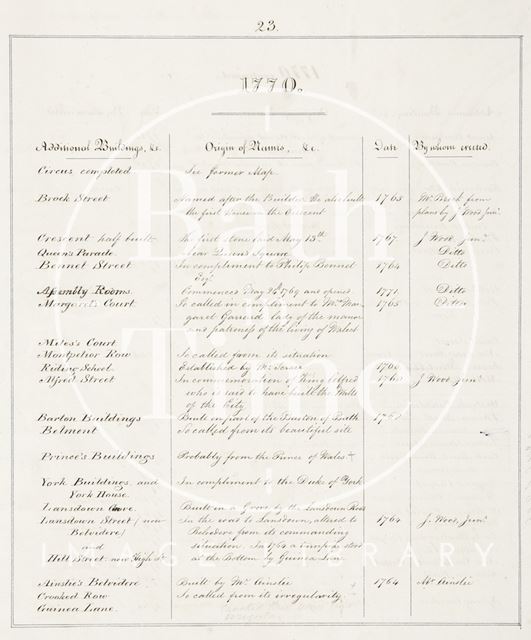 23.
1770.
Additional Buildings, &c. Origin of Names, &c. Date By whom erected.
Circus completed See former Map
Brock Street Named after the Builder He also built 1765 Mr Brock from
the first House in the Crescent plans by J Wood Junr.
Crescent half built The first stone laid May 15th 1767 J Wood Junr.
Queen's Parade Near Queen's Square Ditto
Bennet Street In compliment to Philip Bennet 1764 Ditto
Esqr.
Assembly Rooms. Commenced May 24 1769 and opened 1771 Ditto
Margaret's Court. So called in compliment to Mrs Mar 1765 Ditto
garet Garrard lady of the manor
and patroness of the living of Walcot
Miles's Court.
Montpelier Row So called from its situation
Riding School. Established by Mr
Alfred Street In commemoration of King Alfred J Wood Junr.
who is said to have built the Walls
of the City
Barton Buildings Built on part of the Barton of Bath
Belmont So called from its beautiful site
Prince's Buildings Probably from the Prince of Wales
York Buildings and In compliment to the Duke of York
York House.
Lansdown Grove. Built in a Grove by the Lansdown Road
Lansdown Street (now In the road to Lansdown, altered to 1764 J. Wood, Junr.
Belvedere) Belvedere from its commanding
and situation. In 1764 a Turnpike stood
Hill Street now High St. at the Bottom by Guinea Lane
Ainslie's Belvedere Built by Mr Ainslie 1764 Mr Ainslie
Crooked Row So called from its irregularity
Guinea Lane.
Bath in Time
IMAGE LIBRARY